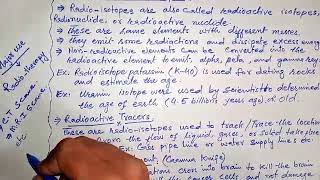 → Radio-isotopes are also called radioactive isotopes,
Radionuclide, or radioactive nuclide.
→ These are same elements with different masses.
→ They emit some radiations and dissipate excess energy
→ Non-radioactive elements can be converted into the
radioactive element to emit, alpha, beta, and gamma ray.
Ex: Radioisotope potassium (K-40) is used for dating rocks
and estimate the age.
Ex: Uranium isotope were used by Scientists to determined
the age of earth (4.5 billions years age) or old.
→ Radioactive Tracers,
These are radio-isotopes used to track/trace the location
from the flow of liquid, gases, or solid take place
Ex: Gas pipe line or water supply lines etc.
(Gamma Knife)
brain to kill the brain
cells and not damage
Radio therapy
C.T Scane
M.R.I Scane
etc